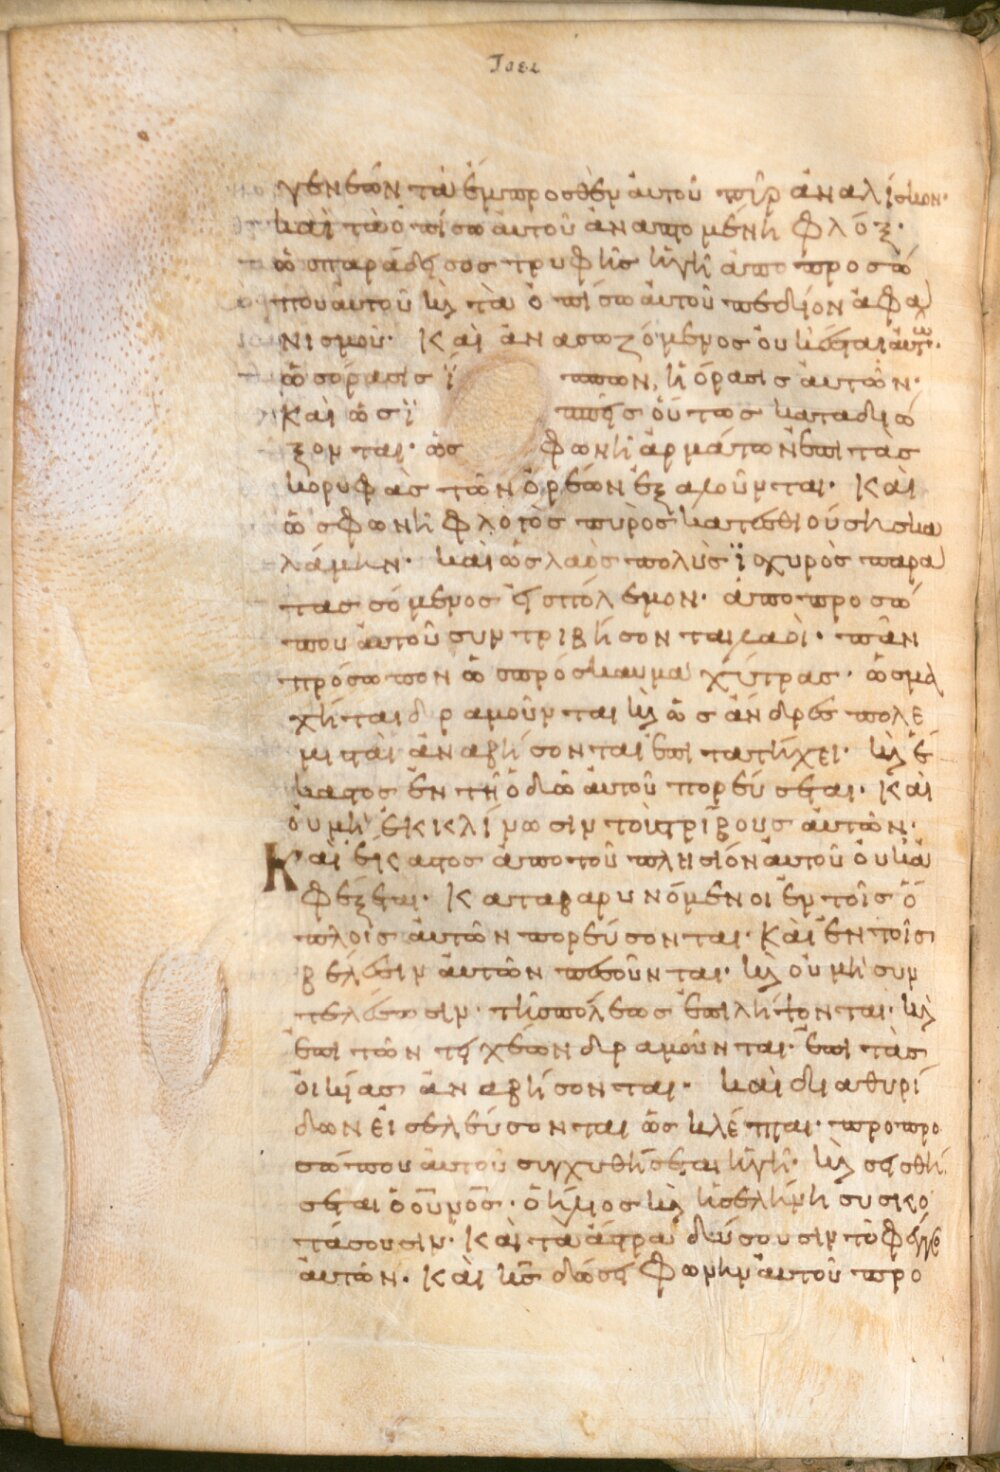 Joel
γενεῶν τὰ ἔμπροσθεν ἀυτοῦ πῦρ ἀναλίσκον·
καὶ τὰ ὀπίσω ἀυτοῦ ἀναπτομένη φλόξ·
ὡσ παράδεισοσ τρυφῆσ ἡ γῆ ἀπο προσώ
που ἀυτοῦ κὶ τὰ ὀπίσω ἀυτοῦ πεδίον ἀφα
νισμοῦ· Καὶ ἀνασωζόμενοσ ὀυκ ἔσται ἀυτῶ·
ὡσ ὅρασισ ἵ ππων, ἡ ὅρασισ ἀυτῶν·
Καὶ ὡσ ἱ ππεῖσ ὅυτωσ καταδιώ
ξονται· ὡσ φωνὴ ἁρμάτων ἐπι τὰσ
κορυφὰσ τῶν ὀρέων ἐξαλοῦνται· Καὶ
ὡσ φωνὴ φλογὸσ πυρὸσ κατεσθιούσησ κα
λάμην· καὶ ὡσ λαὸσ πολὺσ ϊσχυρὸσ παρα
τασσόμενοσ ἐισ πόλεμον· ἀπο προσώ
που ἀυτοῦ συντριβήσονται λαοὶ· πᾶν
πρόσωπον ὡσ πρόσκαυμα χύτρασ· ὡσ μα
χηται δραμοῦνται κὶ ὡσ ἄνδρεσ πολε
μισταὶ ἀναβήσονται ἐπι τα τήχει· κὶ ἕ
καστοσ ἐν τῆ ὁδῶ ἀυτοῦ πορεύσεται· Καὶ
ὀυ μὴ ἐκκλίνωσιν τοὺσ τρίβουσ ἀυτῶν·
Καὶ ἕκαστοσ ἀπο τοῦ πλησιόν ἀυτοῦ ὀυκ ἀ
φέξεται· Καταβαρυνόμενοι ἐν τοῖσ ὅ
πλοισ ἀυτῶν πορεύσονται· Καὶ ἐν τοῖσ
βέλεσιν ἀυτῶν πεσοῦνται· κὶ ὀυ μὴ συν
τελέσωσιν· τῆσ πόλεωσ ἐπιλήψονται· κὶ
ἐπι τῶν τειχέων δραμοῦνται· ἐπι τὰσ
ὀικίασ ἀναβήσονται· καὶ δια θυρί
δων ἐισελεύσονται ὡσ κλέπται· προ προ
σώπου ἀυτοῦ συγχυθήσεται ἡ γῆ· κὶ σεισθή
σεται ὁ οὐνος· ὁ ἥλιοσ κὶ ἡ σελήνη συσκο
τάσουσιν· Καὶ τὰ ἄστρα δύσουσιν τὸ φέγγο
ἀυτῶν· Καὶ κς δώσει φωνὴν ἀυτοῦ προ